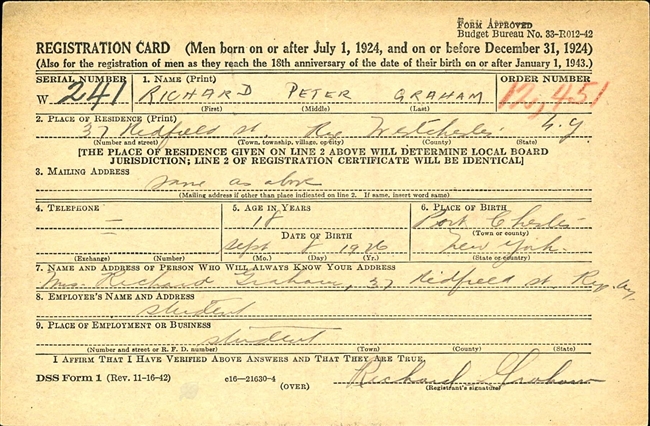 FORM APPROVED
Budget Bureau No. 33-R012-42
REGISTRATION CARD (Men born on or after July 1, 1924, and on or before December 31, 1924)
(Also for the registration of men as they reach the 18th anniversary of the date of their birth on or after January 1, 1943.)
SERIAL NUMBER 1. NAME (Print) ORDER NUMBER
W 241 RICHARD PETER GRAHAM 12,451
(First) (Middle) (Last)
2. PLACE OF RESIDENCE (Print)
37 Redfield st. Rye Westchester N.Y
(Number and street) (Town, township, village, or city) (County) (State)
[THE PLACE OF RESIDENCE GIVEN ON LINE 2 ABOVE WILL DETERMINE LOCAL BOARD
JURISDICTION; LINE 2 OF REGISTRATION CERTIFICATE WILL BE IDENTICAL]
3. MAILING ADDRESS
same as above
(Mailing address if other than place indicated on line 2. If same, insert word same)
4. TELEPHONE 5. AGE IN YEARS 6. PLACE OF BIRTH
— 18 Port Chester
DATE OF BIRTH (Town or county)
— Sept 8 1926 New York.
(Exchange) (Number) (Mo.) (Day) (Yr.) (State or country)
7. NAME AND ADDRESS OF PERSON WHO WILL ALWAYS KNOW YOUR ADDRESS
Mrs. Richard Graham, 37 Redfield st. Rye, N.Y.
8. EMPLOYER'S NAME AND ADDRESS
student
9. PLACE OF EMPLOYMENT OR BUSINESS
student
(Number and street or R. F. D. number) (Town) (County) (State)
I AFFIRM THAT I HAVE VERIFIED ABOVE ANSWERS AND THAT THEY ARE TRUE.
DSS Form 1 (Rev. 11-16-42) e16—21630-4 Richard Graham
(OVER) (Registrant's signature)